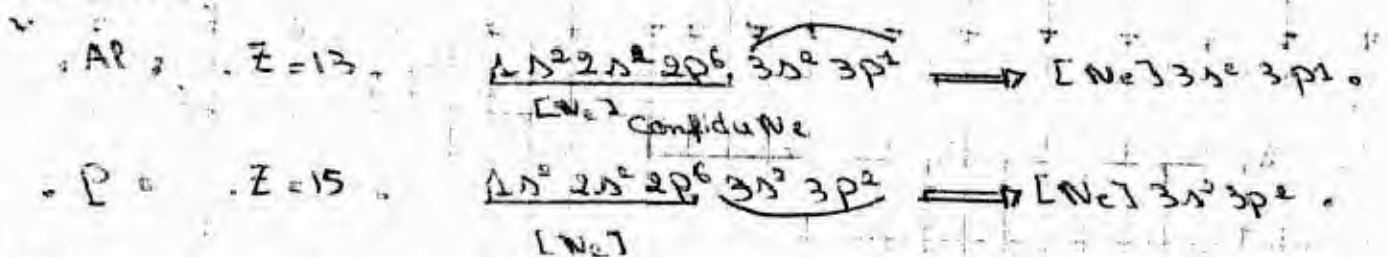 . Al : . Z = 13 . 1s² 2s² 2p⁶ 3s² 3p¹ ⟹ [Ne] 3s² 3p1 .
[Ne] Config du Ne
. P : . Z = 15 . 1s² 2s² 2p⁶ 3s³ 3p² ⟹ [Ne] 3s³ 3p² .
[Ne]